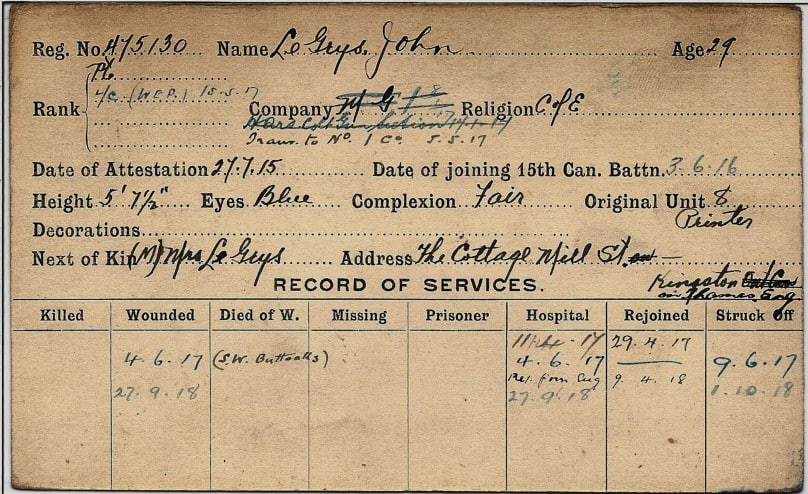 Reg. No. 475130 Name Le Grys. John Age 29
Pte
Rank A/C. (W.E.P.) 15-5-17 Company M G Religion C of E
Colt Gun Section
Trans. to No. 1 Co 5.5.17
Date of Attestation 27.7.15 Date of joining 15th Can. Battn. 3.6.16
Height 5' 7½" Eyes Blue Complexion Fair Original Unit &
Printer
Decorations
Next of Kin (M) Mrs Le Grys Address The Cottage Mill St
Kingston
on Thames Eng
RECORD OF SERVICES.
Killed Wounded Died of W. Missing Prisoner Hospital Rejoined Struck off
11.4.17 29.4.17
4.6.17 (S.W. Buttocks) 4.6.17 9.6.17
Ret. from Eng 9.4.18
27.9.18 27.9.18 1.10.18